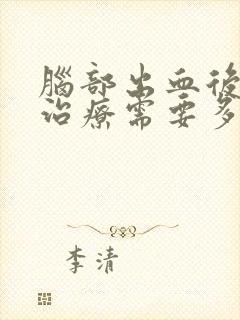 腦部出血後
治療需要多
李清